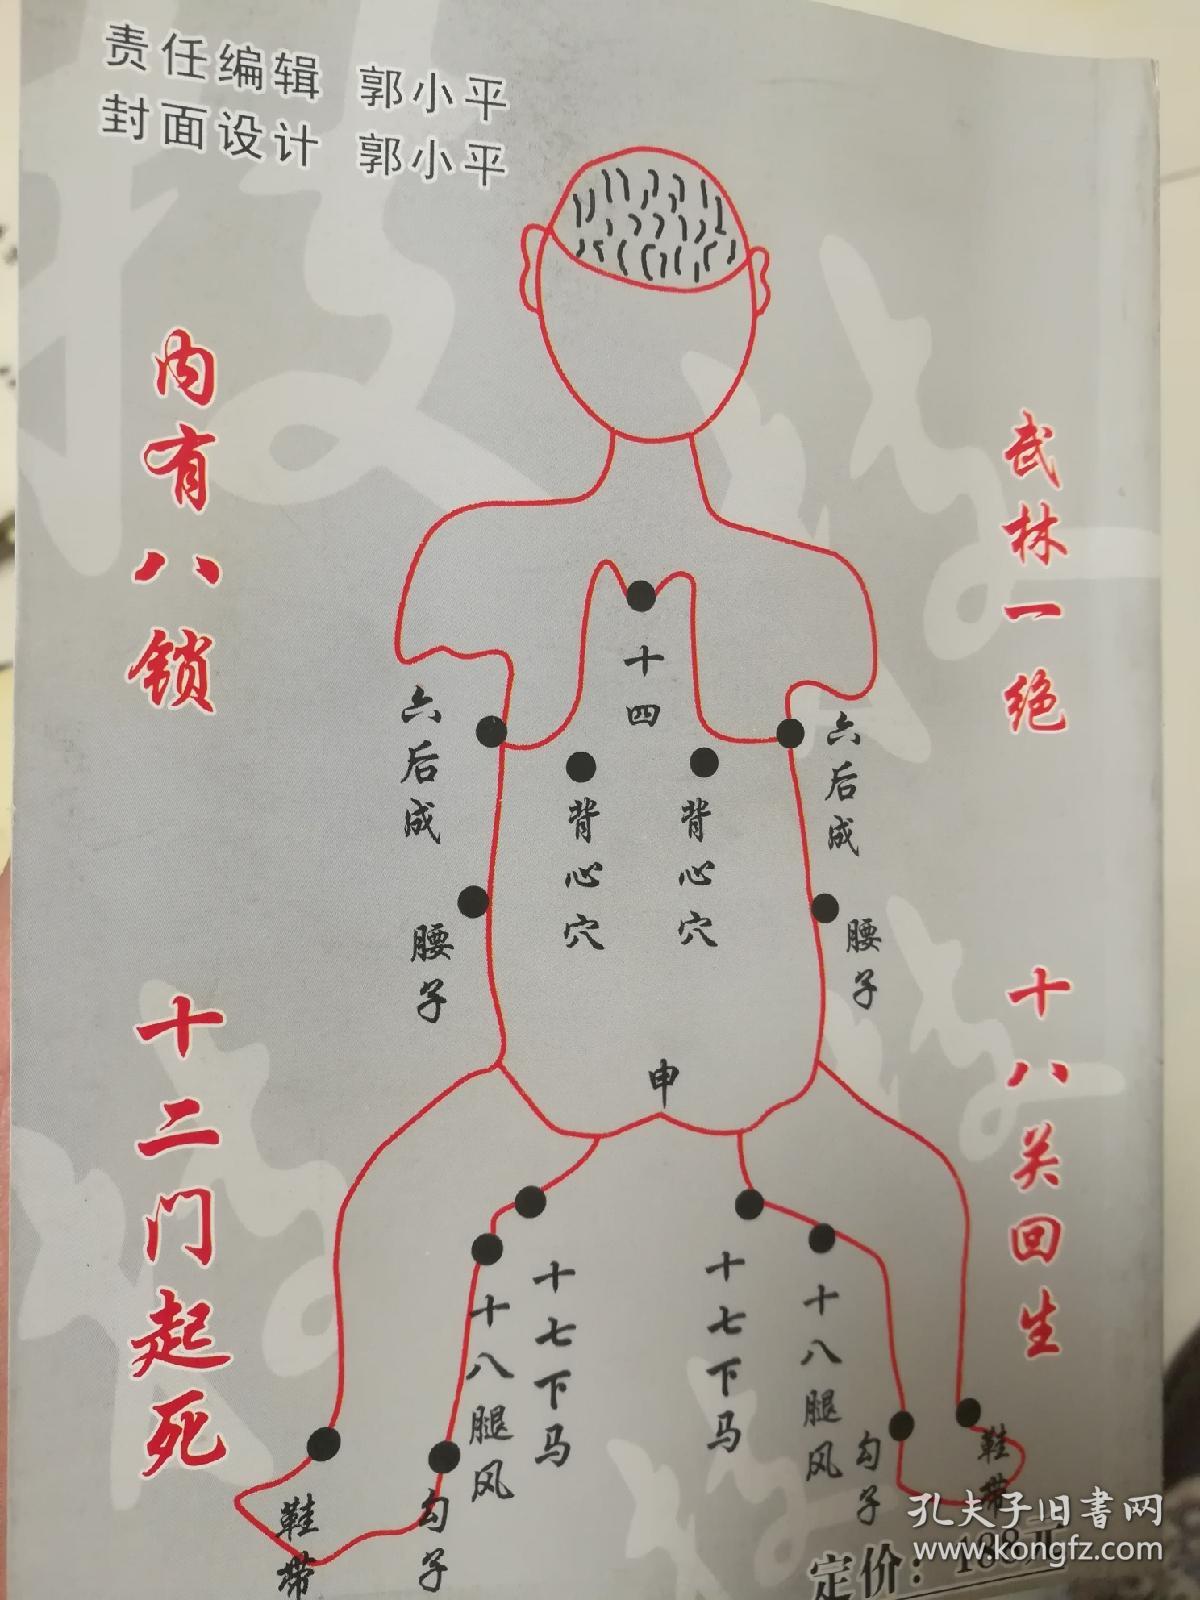 责任编辑 郭小平
封面设计 郭小平
武林一绝
十八关回生
内有八锁
十二门起死
十四
六后成
六后成
背心穴
背心穴
腰子
腰子
申
十七下马
十七下马
十八腿风
十八腿风
勾子
勾子
鞋带
鞋带
定价：188元
孔夫子旧书网
www.kongfz.com